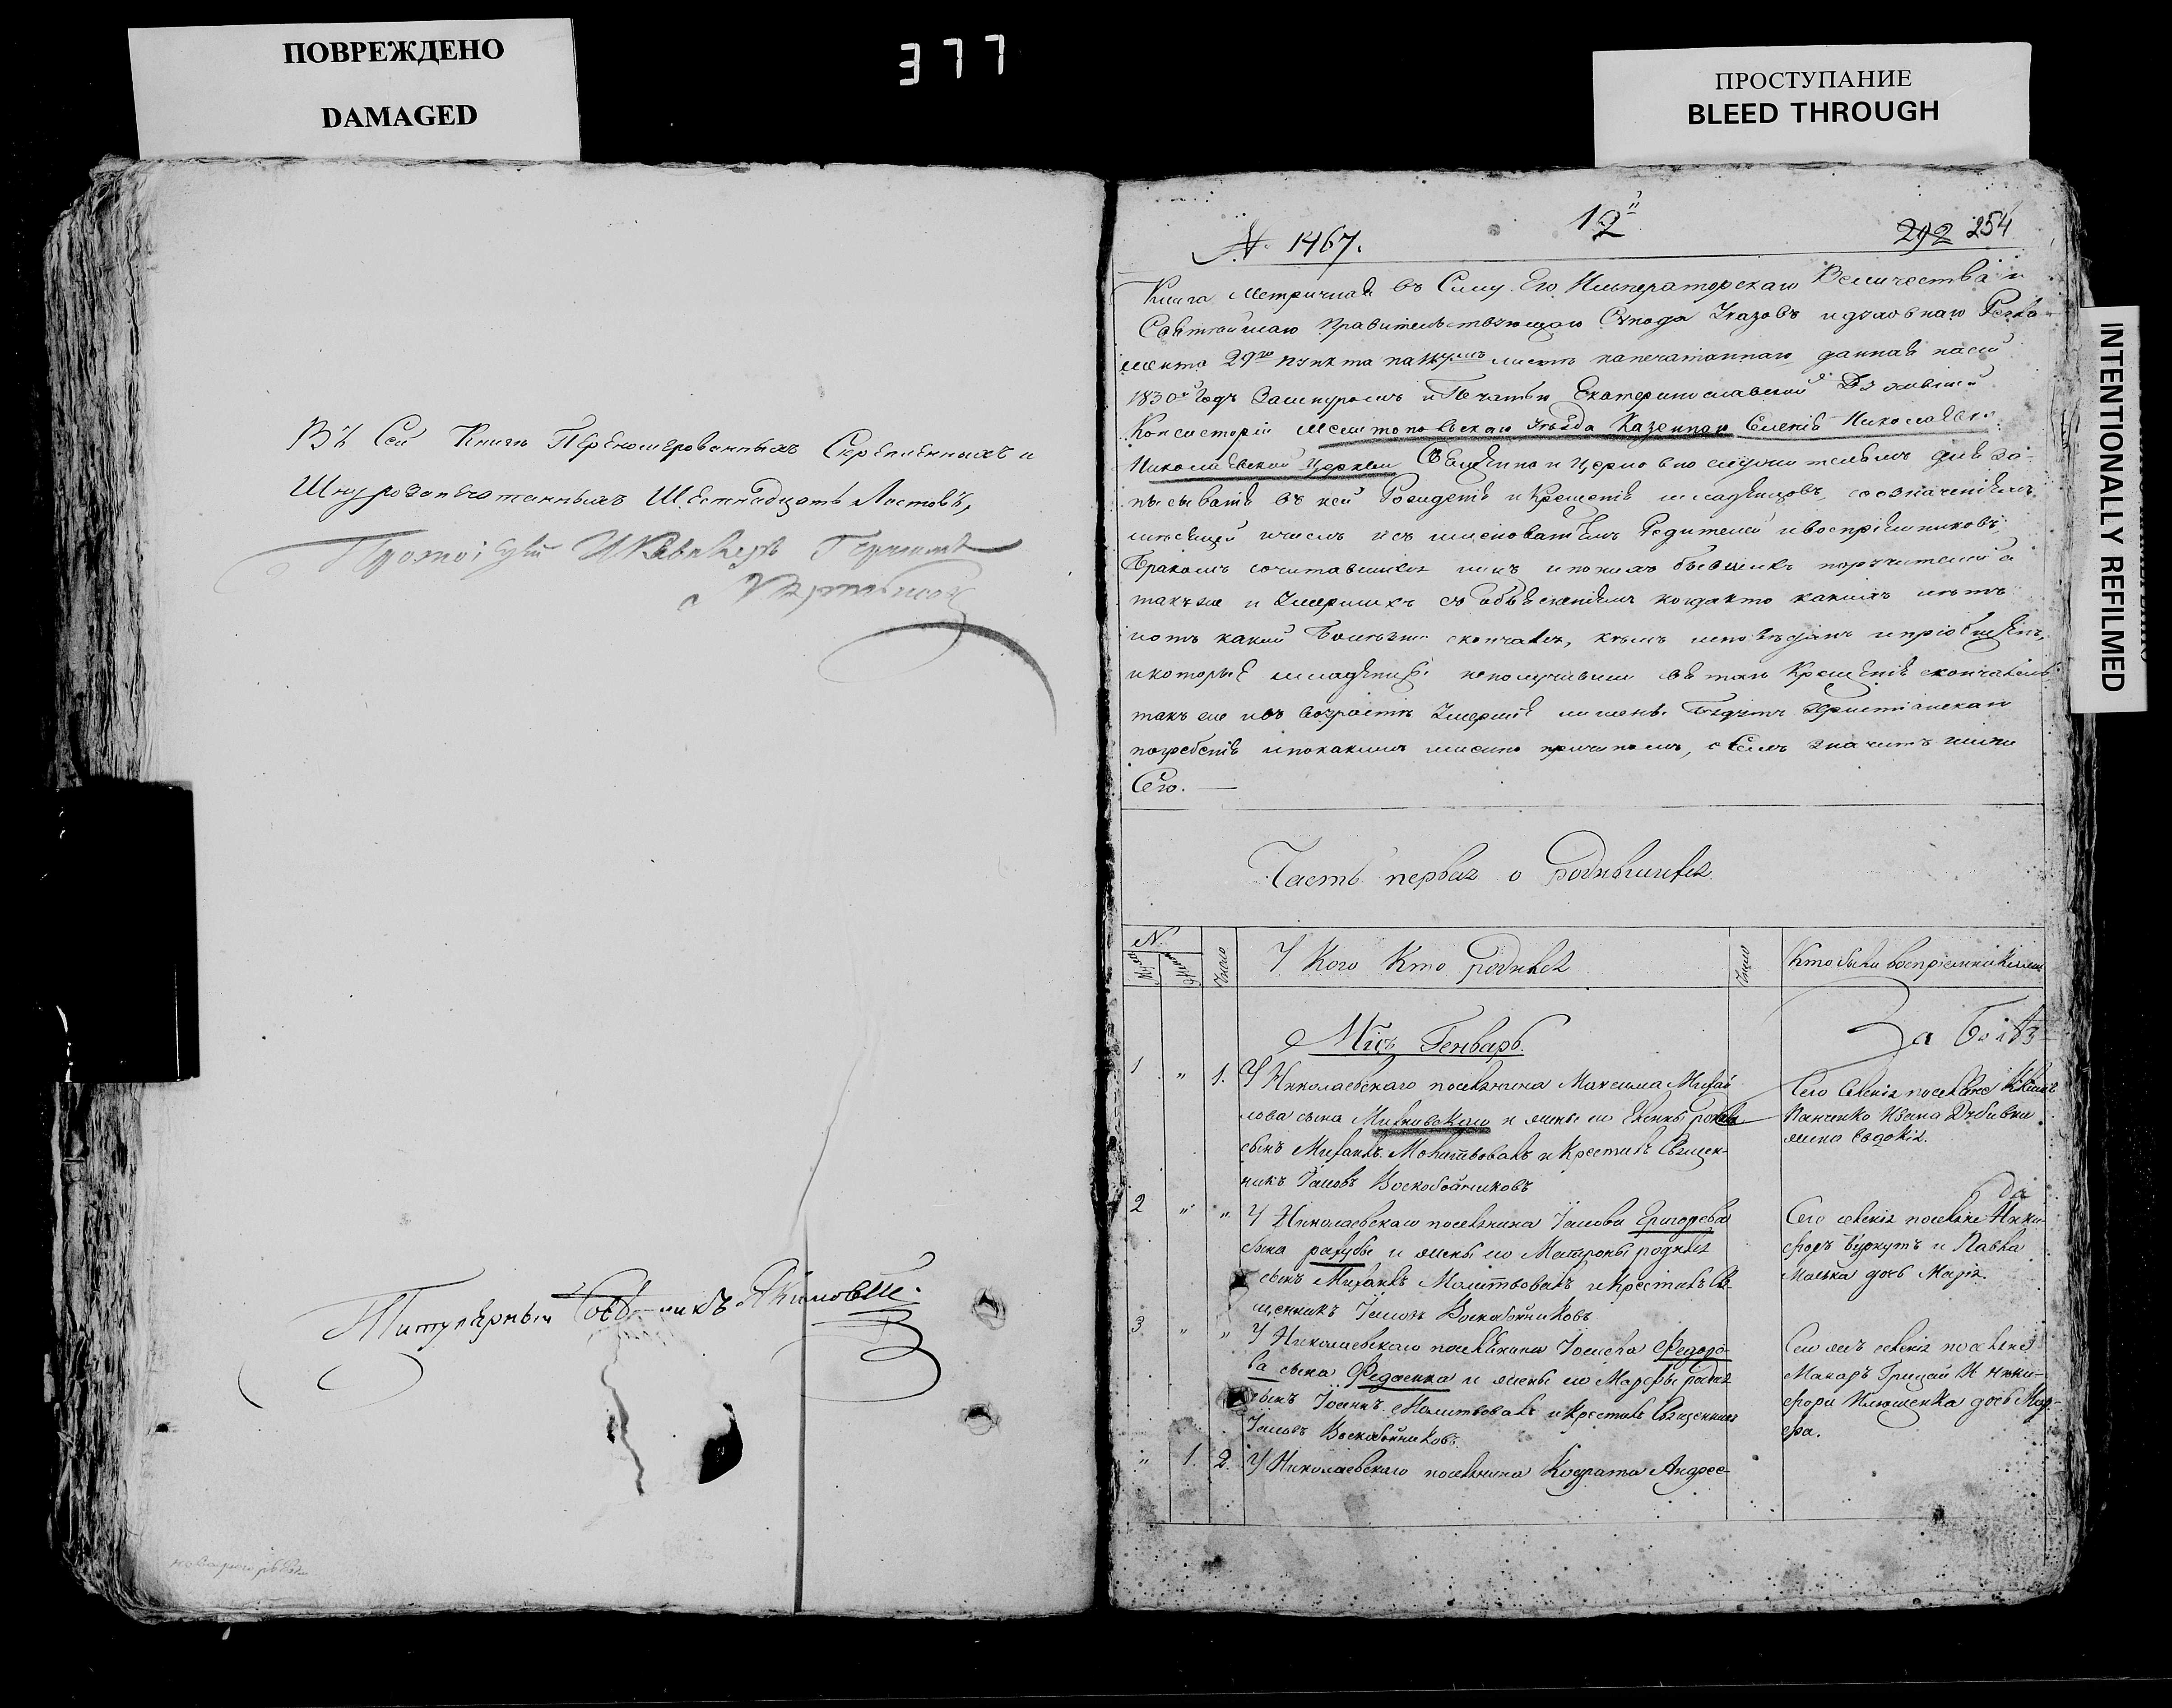 ПОВРЕЖДЕНО
DAMAGED
377
ПРОСТУПАНИЕ
BLEED THROUGH
INTENTIONALLY REFILMED
Въ Сей Книгѣ Перенумерованныхъ Скрепленныхъ и
Шнурозапечатанныхъ Шестнадцать Листовъ,
Протоіерей и Кавалеръ
Титулярный Советникъ Якимовъ.
№ 1467.
12
292 254
Книга Метричная въ Силу Его Императорскаго Величества и
Святѣйшаго Правительствующаго Сѵнода Указовъ и духовнаго Регла-
мента 29го пункта на листѣ напечатаннаго данная на сей
1830й Годъ За шнуромъ и Печатью Екатеринославской Духовной
Консисторіи Мелитопольскаго Уѣзда Казеннаго Селенія Николаевки
Николаевской Церкви Священно и Церковнослужителямъ для за-
писыванія въ ней Рожденія и Крещенія младенцовъ, со означеніемъ
мѣсяцей и числъ и съ именованіемъ Родителей и воспріемниковъ,
Бракомъ сочитавшихся и по нихъ бывшихъ поручителей а
такъже и Умершихъ съ объясненіемъ когда кто какихъ лѣтъ
и отъ какой болѣзни скончался, кѣмъ исповѣданъ и пріобщенъ,
и которые младенцы неполучивши святаго Крещенія скончались
такъ же и въ возрастѣ Умершіе лишены будутъ Христіанскаго
погребенія и по какимъ имянно причинамъ, о семъ значитъ ниже
Сего.
Часть первая о родившихся
№
Число
У Кого Кто родился
Число
Кто были воспріемниками
Мцъ Генварь.
1 " 1. У Николаевскаго поселянина Максима Михай-
лова сына Михновскаго и жены его Елены родился
сынъ Михаилъ. Молитвовалъ и Крестилъ Священ-
никъ Іаковъ Воскобойниковъ
Сего селенія поселяне
Панченко Ивана
жена Евдокія.
2 " " У Николаевскаго поселянина Іакова Григорьева
сына и жены его Матроны родился
сынъ Михаилъ Молитвовалъ и Крестилъ Свя-
щенникъ Іаковъ Воскобойниковъ
Сего селенія поселяне Ники-
форъ и Павла
дочь Марія.
3 " " У Николаевскаго поселянина Федоро-
ва сына Федоенка и жены его Марфы родился
сынъ Іоаннъ. Молитвовалъ и Крестилъ Священникъ
Іаковъ Воскобойниковъ.
Сего жъ селенія поселяне
Макаръ Грицай и Ники-
фора дочь Мар-
фа.
" 1. 2. У Николаевскаго поселянина Кодрата Андрее-